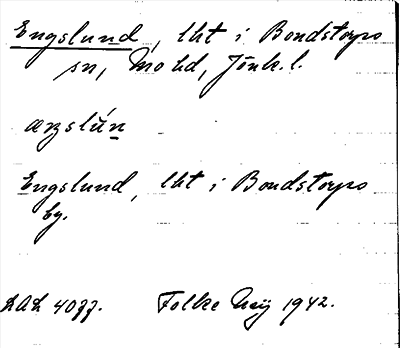 Engslund, lht i Bondstorps
sn, Mo hd, Jönk. l.
æŋslún
Engslund, lht i Bondstorps
by.
LAL 4077.   Folke Mey 1942.